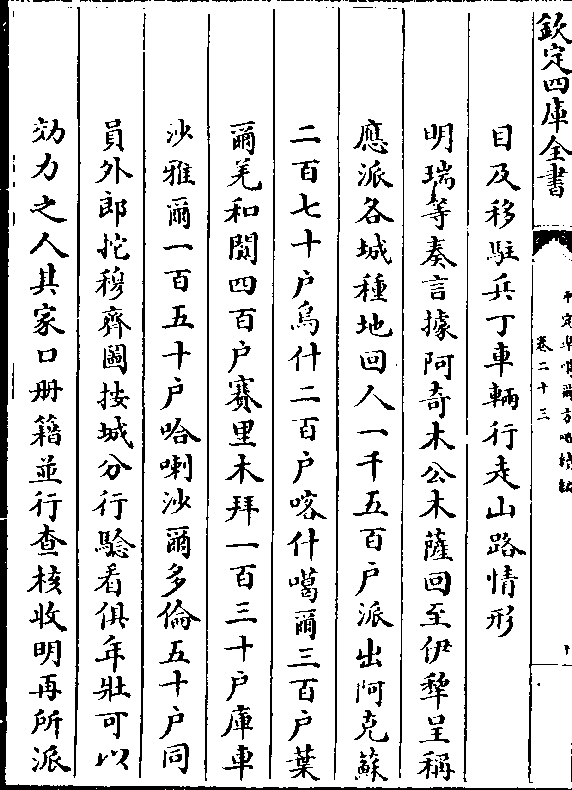 欽定四庫全書
平定準噶爾方略續編
卷二十三
目及移駐兵丁車輛行走山路情形
明瑞等奏言據阿奇木公木薩回至伊犂呈稱
應派各城種地回人一千五百户派出阿克蘇
二百七十户烏什二百户喀什噶爾三百户葉
爾羌和闐四百户賽里木拜一百三十户庫車
沙雅爾一百五十户哈喇沙爾多倫五十户同
員外郎挖穆齊圖按城分行驗看俱年壯可以
効力之人其家口册籍並行查核收明再所派